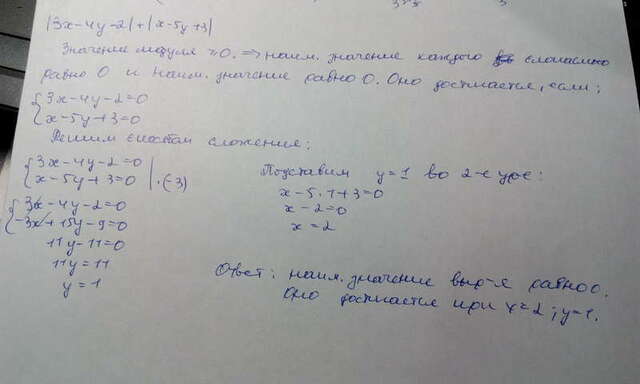 |3x-4y-2|+|x-5y+3|
Значение модуля ≥0. ⇒ наим. значение каждого слагаемого
равно 0 и наим. значение равно 0. Оно достигается, если:
{3x-4y-2=0
{x-5y+3=0
Решим способом сложения:
{3x-4y-2=0
{x-5y+3=0 |·(-3)
{3x-4y-2=0
{-3x+15y-9=0
11y-11=0
11y=11
y=1
Подставим y=1 во 2-е ур-е:
x-5·1+3=0
x-2=0
x=2
Ответ: наим. значение выр-я равно 0.
Оно достигается при x=2; y=1.